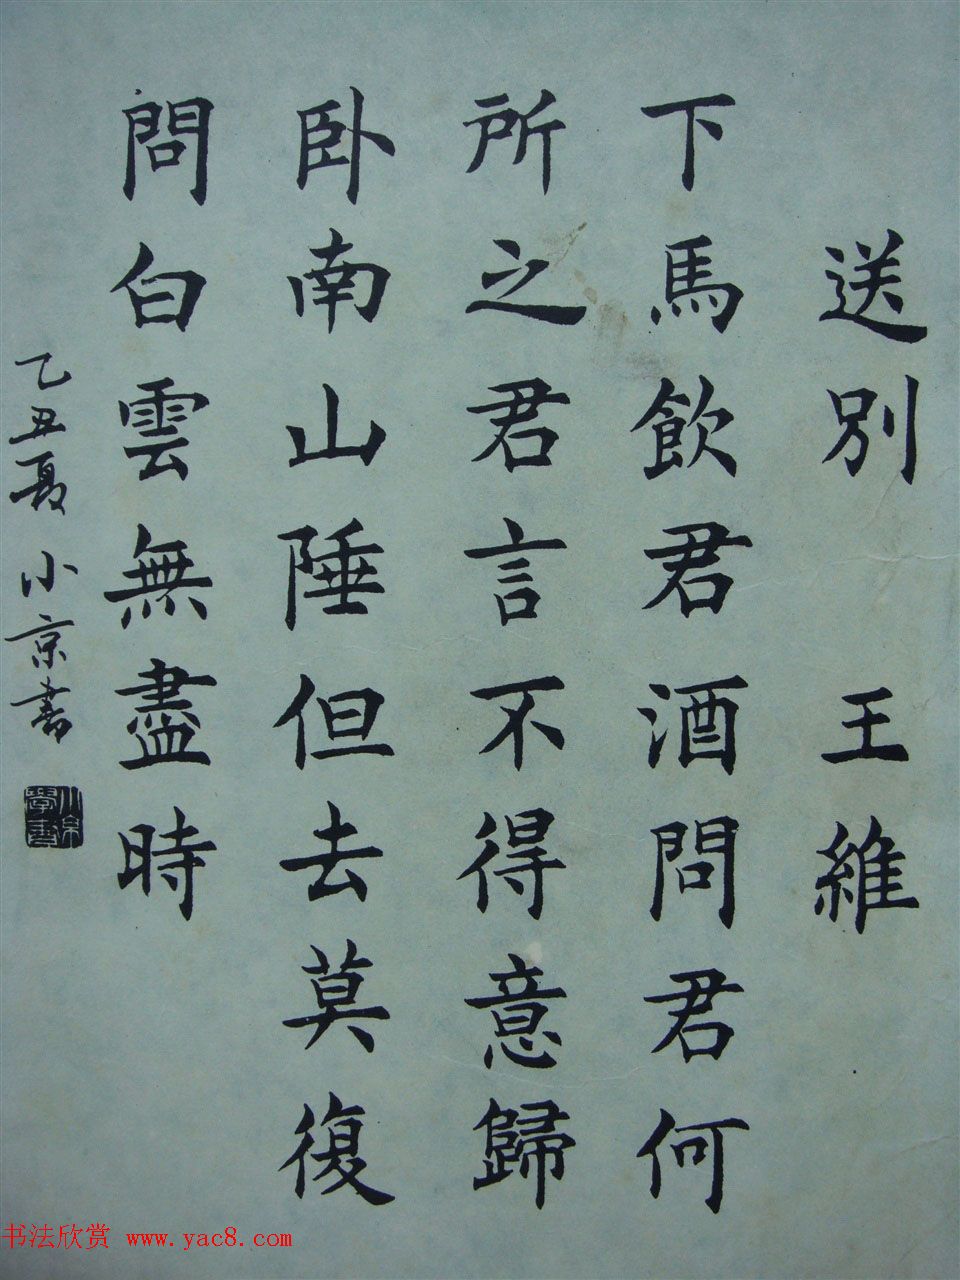 送別 王維
下馬飲君酒問君何
所之君言不得意歸
臥南山陲但去莫復
問白雲無盡時
乙丑夏小京書
小京學書
书法欣赏 www.yac8.com